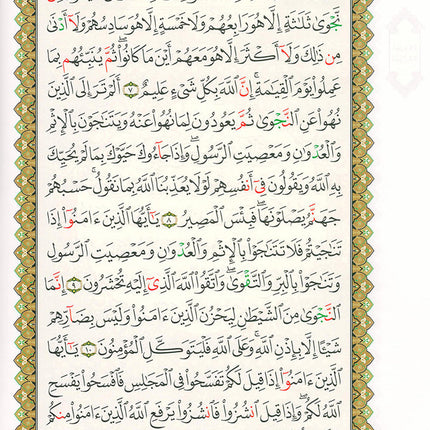 نَّجۡوَىٰ ثَلَٰثَةٍ إِلَّا هُوَ رَابِعُهُمۡ وَلَا خَمۡسَةٍ إِلَّا هُوَ سَادِسُهُمۡ وَلَآ أَدۡنَىٰ
مِن ذَٰلِكَ وَلَآ أَكۡثَرَ إِلَّا هُوَ مَعَهُمۡ أَيۡنَ مَا كَانُواْۖ ثُمَّ يُنَبِّئُهُم بِمَا
عَمِلُواْ يَوۡمَ ٱلۡقِيَٰمَةِۚ إِنَّ ٱللَّهَ بِكُلِّ شَيۡءٍ عَلِيمٌ ٧ أَلَمۡ تَرَ إِلَى ٱلَّذِينَ
نُهُواْ عَنِ ٱلنَّجۡوَىٰ ثُمَّ يَعُودُونَ لِمَا نُهُواْ عَنۡهُ وَيَتَنَٰجَوۡنَ بِٱلۡإِثۡمِ
وَٱلۡعُدۡوَٰنِ وَمَعۡصِيَتِ ٱلرَّسُولِۖ وَإِذَا جَآءُوكَ حَيَّوۡكَ بِمَا لَمۡ يُحَيِّكَ
بِهِ ٱللَّهُ وَيَقُولُونَ فِيٓ أَنفُسِهِمۡ لَوۡلَا يُعَذِّبُنَا ٱللَّهُ بِمَا نَقُولُۚ حَسۡبُهُمۡ
جَهَنَّمُ يَصۡلَوۡنَهَاۖ فَبِئۡسَ ٱلۡمَصِيرُ ٨ يَٰٓأَيُّهَا ٱلَّذِينَ ءَامَنُوٓاْ إِذَا
تَنَٰجَيۡتُمۡ فَلَا تَتَنَٰجَوۡاْ بِٱلۡإِثۡمِ وَٱلۡعُدۡوَٰنِ وَمَعۡصِيَتِ ٱلرَّسُولِ
وَتَنَٰجَوۡاْ بِٱلۡبِرِّ وَٱلتَّقۡوَىٰۖ وَٱتَّقُواْ ٱللَّهَ ٱلَّذِيٓ إِلَيۡهِ تُحۡشَرُونَ ٩ إِنَّمَا
ٱلنَّجۡوَىٰ مِنَ ٱلشَّيۡطَٰنِ لِيَحۡزُنَ ٱلَّذِينَ ءَامَنُواْ وَلَيۡسَ بِضَآرِّهِمۡ
شَيۡـًٔا إِلَّا بِإِذۡنِ ٱللَّهِۚ وَعَلَى ٱللَّهِ فَلۡيَتَوَكَّلِ ٱلۡمُؤۡمِنُونَ ١٠ يَٰٓأَيُّهَا
ٱلَّذِينَ ءَامَنُوٓاْ إِذَا قِيلَ لَكُمۡ تَفَسَّحُواْ فِي ٱلۡمَجَٰلِسِ فَٱفۡسَحُواْ يَفۡسَحِ
ٱللَّهُ لَكُمۡۖ وَإِذَا قِيلَ ٱنشُزُواْ فَٱنشُزُواْ يَرۡفَعِ ٱللَّهُ ٱلَّذِينَ ءَامَنُواْ مِنكُمۡ